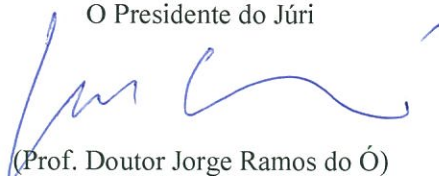 O Presidente do Júri
(Prof. Doutor Jorge Ramos do Ó)